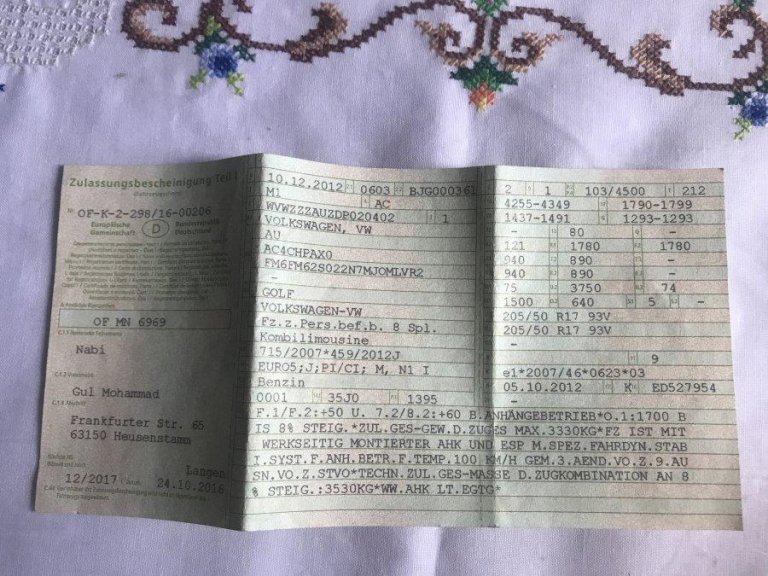 Zulassungsbescheinigung Teil I
(Fahrzeugschein)
Nr. OF-K-2-298/16-00206
Europäische
Gemeinschaft
D
Bundesrepublik
Deutschland
OF MN 6969
Nabi
Gul Mohammad
Frankfurter Str. 65
63150 Heusenstamm
Langen
12/2017
24.10.2016
10.12.2012 0603 BJG000361
M1 AC
WVWZZZAUZDP020402 1
VOLKSWAGEN, VW
AU
AC4CHPAX0
FM6FM62S022N7MJOMLVR2
-
GOLF
VOLKSWAGEN-VW
Fz.z.Pers.bef.b. 8 Spl.
Kombilimousine
715/2007*459/2012J
EURO5;J;PI/CI; M, N1 I
Benzin
0001 35J0 1395
2 1 103/4500 212
4255-4349 1790-1799
1437-1491 1293-1293
- 80 -
121 1780 1780
940 890 -
940 890 -
75 3750 74
1500 640 5 -
205/50 R17 93V
205/50 R17 93V
-
- 9
e1*2007/46*0623*03
05.10.2012 K ED527954
F.1/F.2:+50 U. 7.2/8.2:+60 B.ANHÄNGEBETRIEB*O.1:1700 B
IS 8% STEIG.*ZUL.GES-GEW.D.ZUGES MAX.3330KG*FZ IST MIT
WERKSEITIG MONTIERTER AHK UND ESP M.SPEZ.FAHRDYN.STAB
I.SYST.F.ANH.BETR.F.TEMP.100 KM/H GEM.3.AEND.VO.Z.9.AU
SN.VO.Z.STVO*TECHN.ZUL.GES-MASSE D.ZUGKOMBINATION AN 8
% STEIG.:3530KG*WW.AHK LT.EGTG*